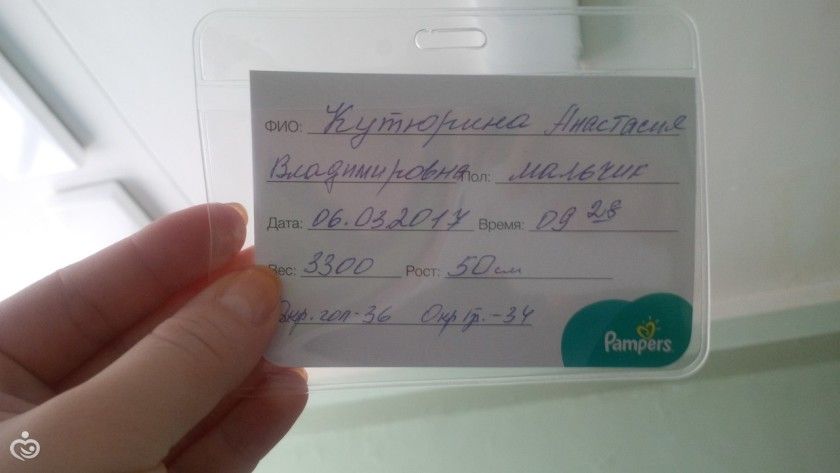 ФИО: Кутюрина Анастасия
Владимировна Пол: мальчик
Дата: 06.03.2017 Время: 09 28
Вес: 3300 Рост: 50 см
Окр. гол-36 Окр гр.-34
Pampers